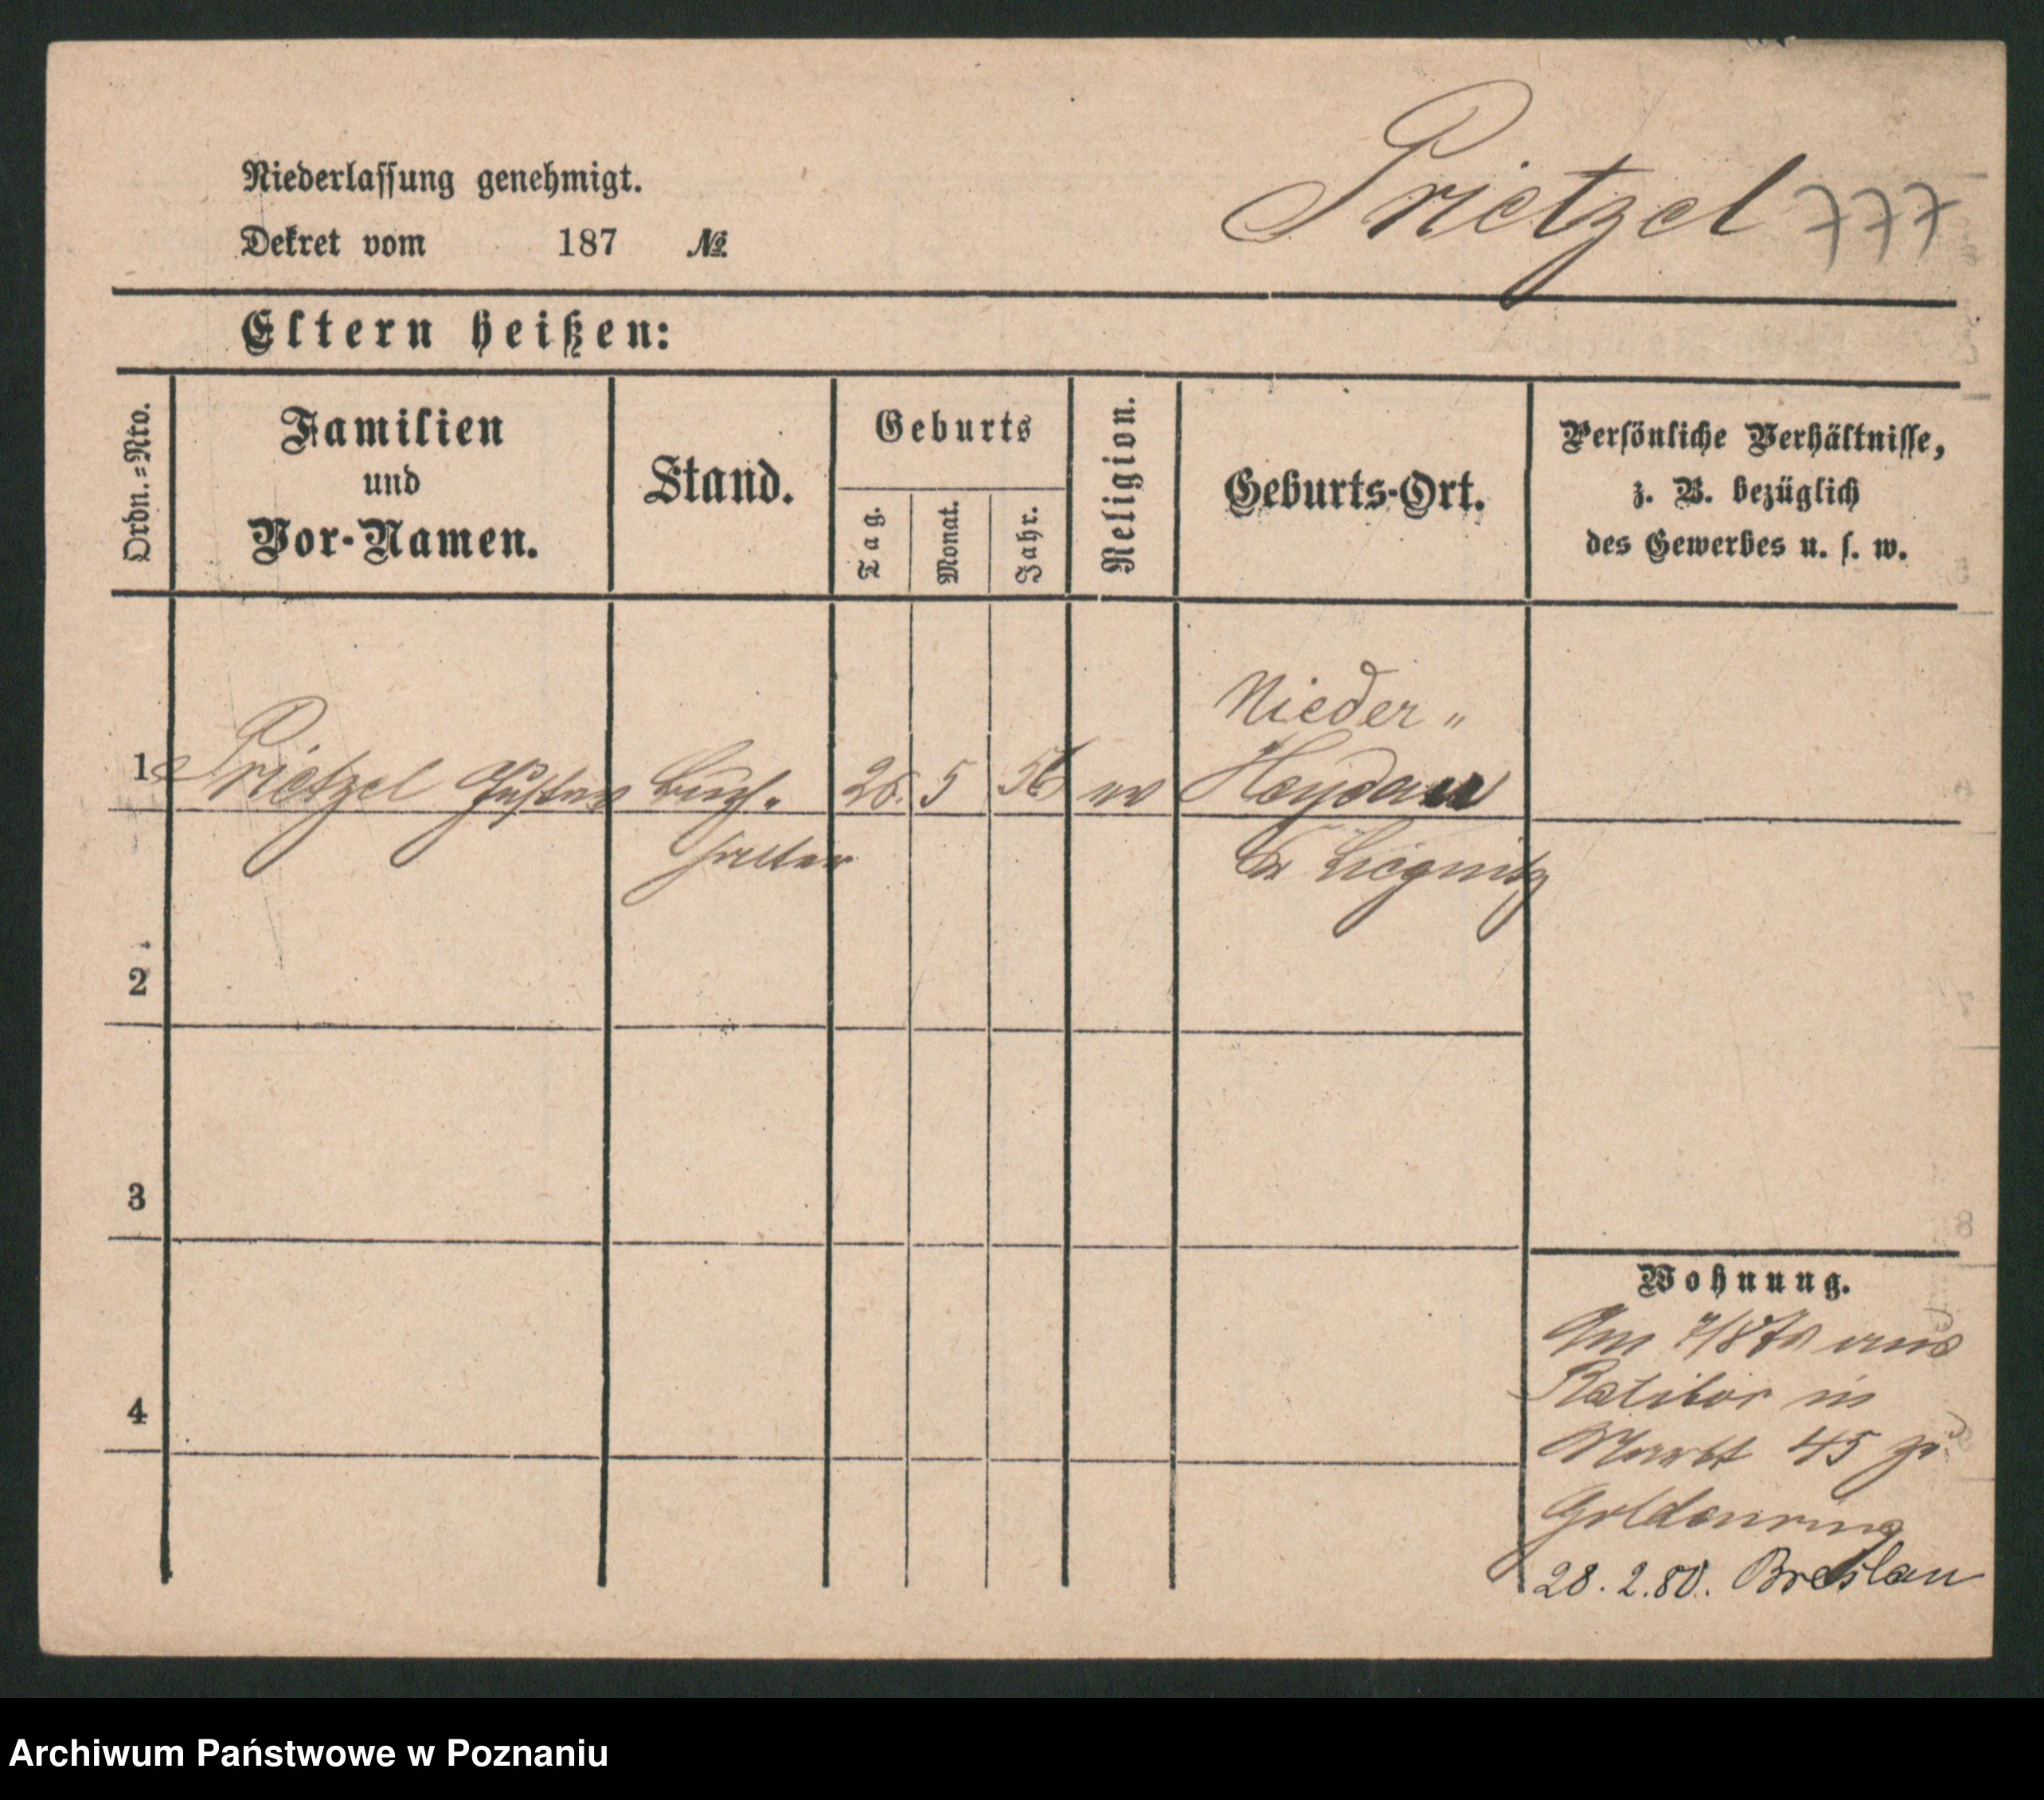 Niederlassung genehmigt.
Dekret vom 187 №
Prietzel 777
Eltern heißen:
Ordn.=Nro.
Familien
und
Vor-Namen.
Stand.
Geburts
Tag.
Monat.
Jahr.
Religion.
Geburts-Ort.
Persönliche Verhältnisse,
z. B. bezüglich
des Gewerbes u. s. w.
Nieder"
1 Prietzel Gustav Buch. 26. 5 56 Heydau
halter Kr Liegnitz
2
3
4
Wohnung.
Am aus
Ratibor in
Markt 45 z.
Goldenring
28. 2. 80. Breslau
Archiwum Państwowe w Poznaniu